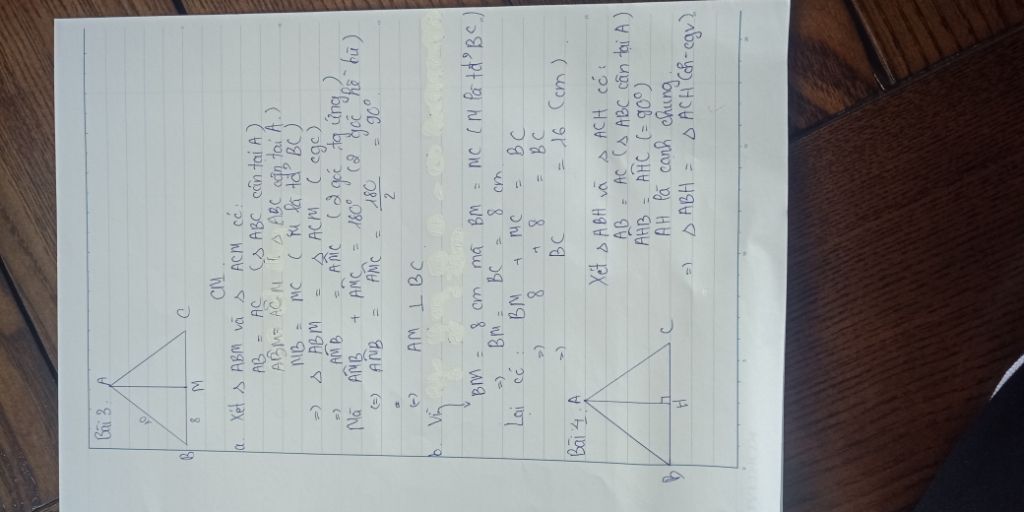 Bài 3:
A
8
B
M
C
CM
a. Xét Δ ABM và Δ ACM có:
AB = AC (Δ ABC cân tại A)
ABM = ACM (Δ ABC cân tại A)
MB = MC (M là tđ' BC)
=> Δ ABM = Δ ACM (cgc)
=> AMB = AMC (2 góc tg ứng)
Mà AMB + AMC = 180° (2 góc kề-bù)
(=) AMB = AMC = 180/2 = 90°
(=) AM ⊥ BC
b. Vì
BM = 8 cm mà BM = MC (M là tđ' BC)
=> BM = BC = 8 cm
Lại có: BM + MC = BC
=) 8 + 8 = BC
=) BC = 16 (cm)
Bài 4:
A
B
H
C
Xét Δ ABH và Δ ACH có:
AB = AC (Δ ABC cân tại A)
AHB = AHC (= 90°)
AH là cạnh chung
=) Δ ABH = Δ ACH (ch-cgv)